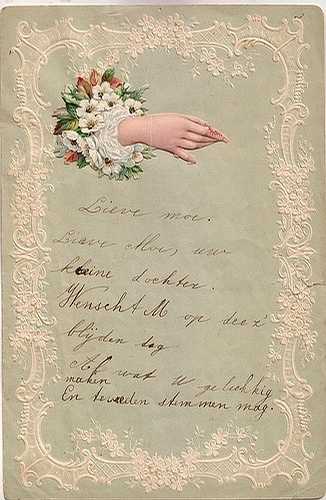 Lieve moe.
Lieve Moe, uw
kleine dochter.
Wenscht M op deez'
blijden dag
Al wat u gelukkig
maken
En tevreden stemmen mag.